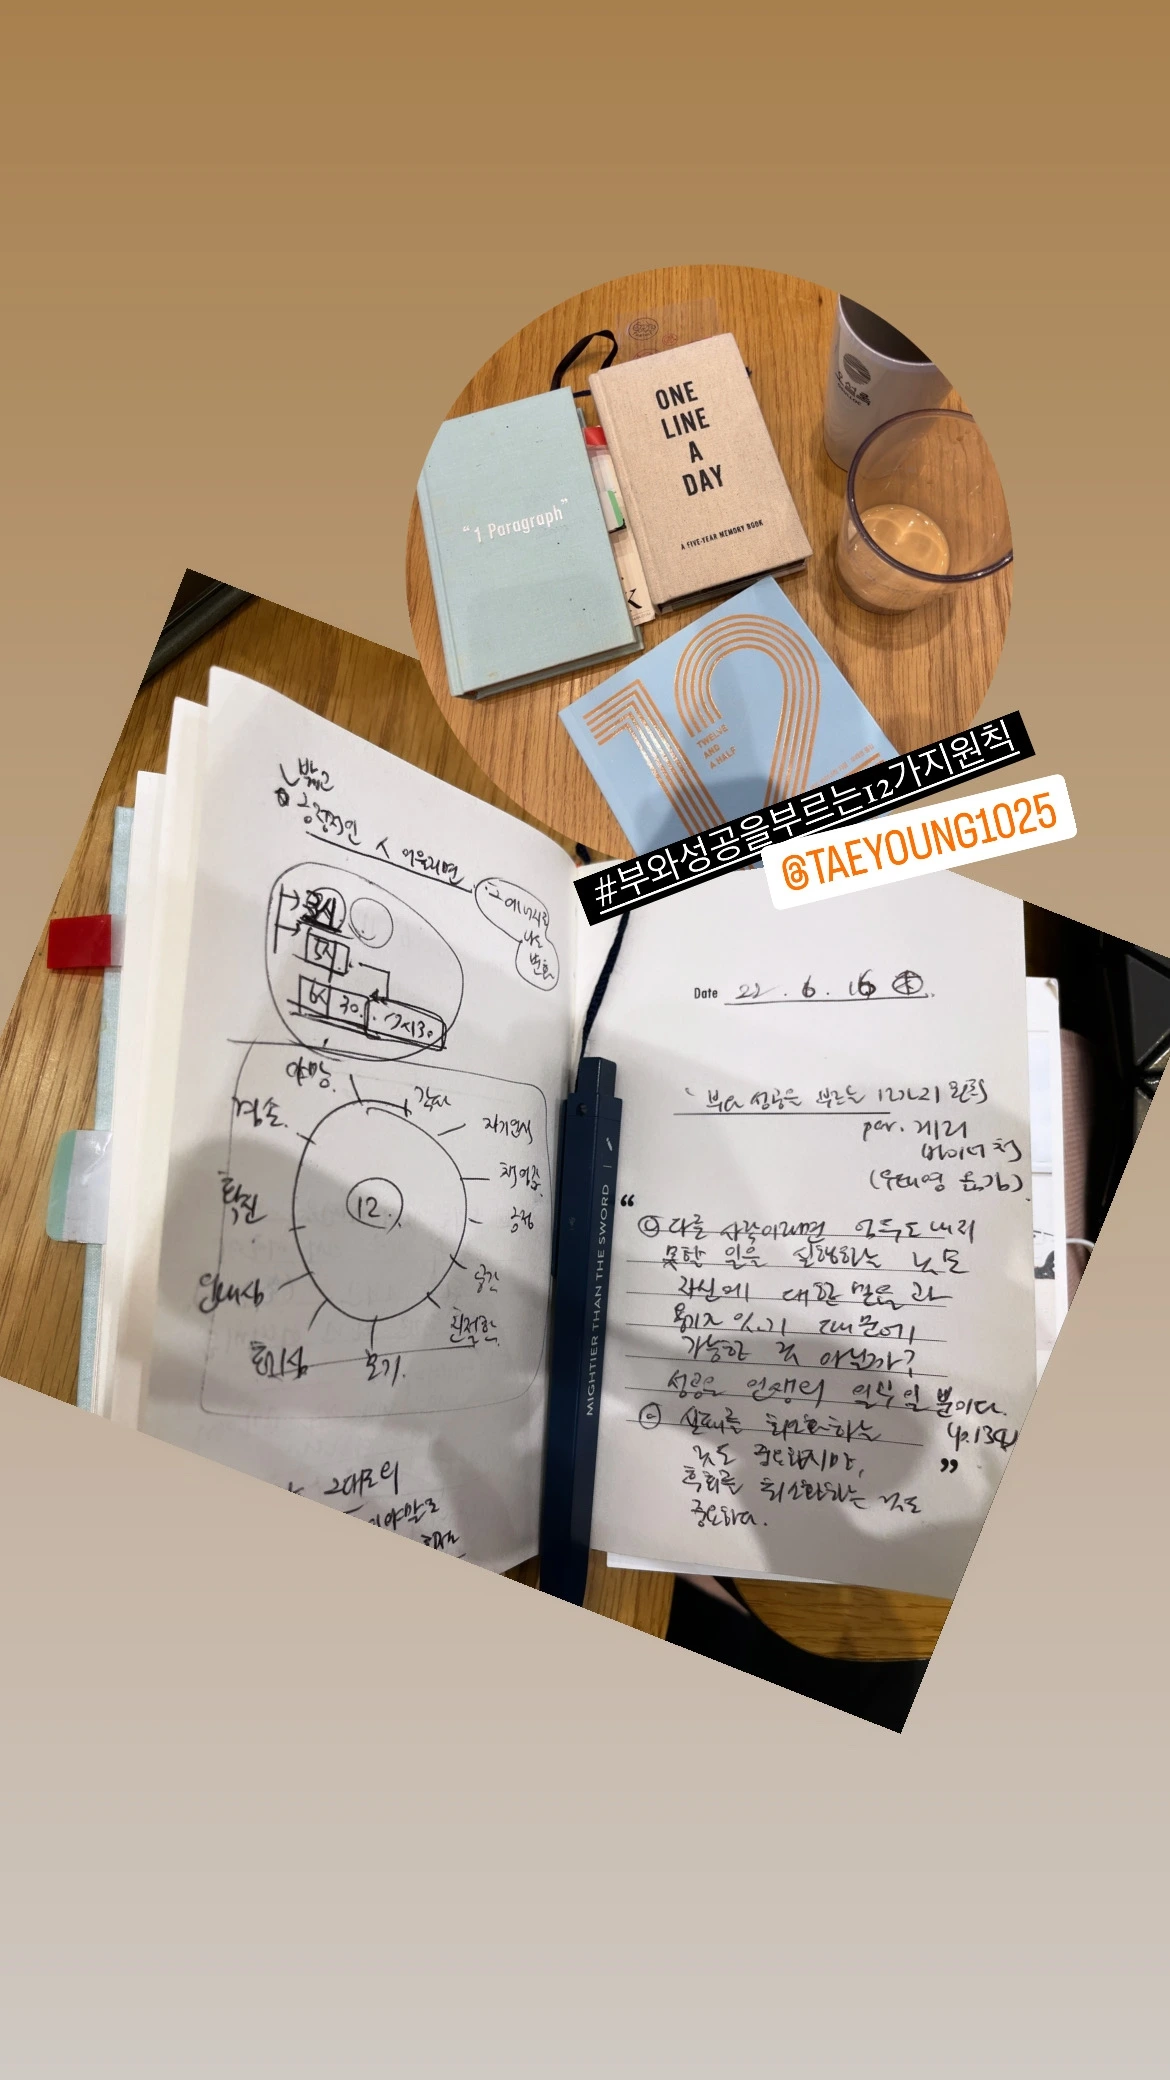 ONE
LINE
A
DAY
A FIVE-YEAR MEMORY BOOK
"1 Paragraph"
12
TWELVE
AND
A HALF
#부와성공을부르는12가지원칙
@TAEYOUNG1025
밝고
긍정적인 사 어울리면
나도
변화
5시
30.
야망.
감사
겸손.
자기인식
책임감.
긍정
12.
확신
인내심
공감
친절함.
호기심
용기.
그대로의
Date 22. 6. 16 木.
부와 성공을 부르는 12가지 원칙
par. 게리
바이너척
(우태영 옮김)
“
다른 사람이라면 엄두도 내지
못할 일을 실행하는 것도
자신에 대한 믿음과
용기가 있기 때문에
가능한 것 아닐까?
성공은 인생의 일부일 뿐이다.
실패를 최소화하는
것도 중요하지만,
”
후회를 최소화하는 것도
중요하다.
MIGHTIER THAN THE SWORD